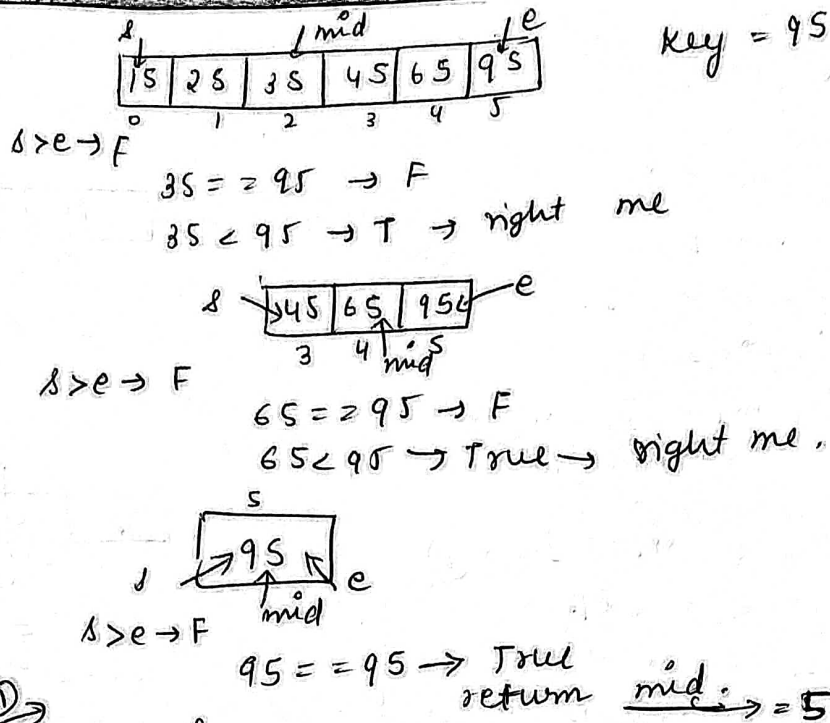 s mid e
15 25 35 45 65 95 key = 95
0 1 2 3 4 5
s>e → F
35 == 95 → F
35 < 95 → T → right me
s 45 65 95 e
3 4 mid 5
s>e → F
65 == 95 → F
65 < 95 → True → right me.
5
95
s mid e
s>e → F
95 == 95 → True
return mid. → = 5